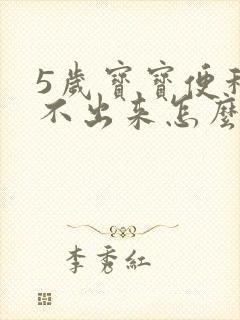 5歲寶寶便秘
不出来怎麼
李秀紅